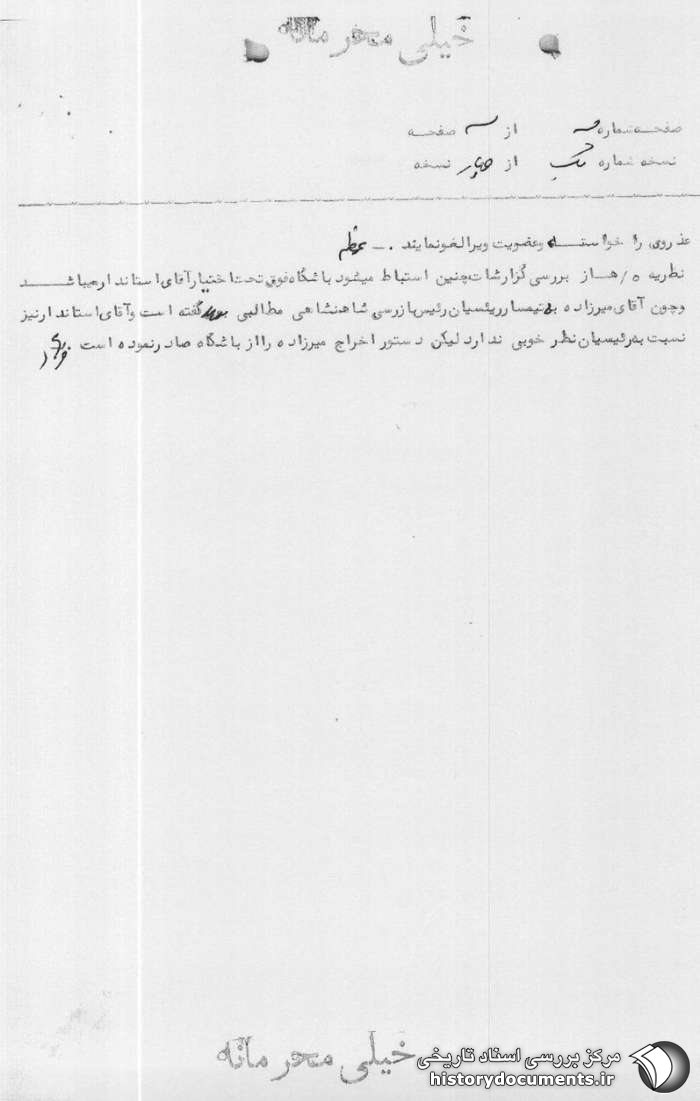 خیلی محرمانه
صفحه شماره سه از سه صفحه
نسخه شماره یک از چهار نسخه
عذر وی را خواسته و عضویت ویرا لغو نمایند . -
نظریه ه/هـاز بررسی گزارشات چنین استباط میشود باشگاه فوق تحت اختیار آقای استاندار میباشد
و چون آقای میرزاده به تیمسار رئیسیان رئیس بازرسی شاهنشاهی مطالبی گفته است و آقای استاندار نیز
نسبت به رئیسیان نظر خوبی ندارد لیکن دستور اخراج میرزاده را از باشگاه صادر نموده است .
خیلی محرمانه
مرکز بررسی اسناد تاریخی
historydocuments.ir